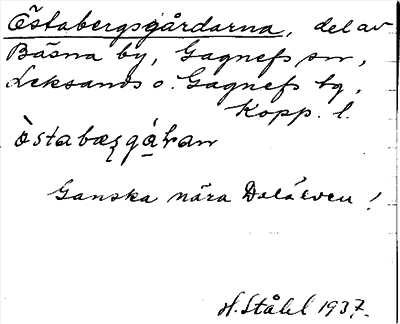 Östabergsgårdarna, del av
Bäsna by, Gagnefs sn,
Leksands o. Gagnefs tg,
Kopp. l.
Ganska nära Dalälven!
H. Ståhl 1937.